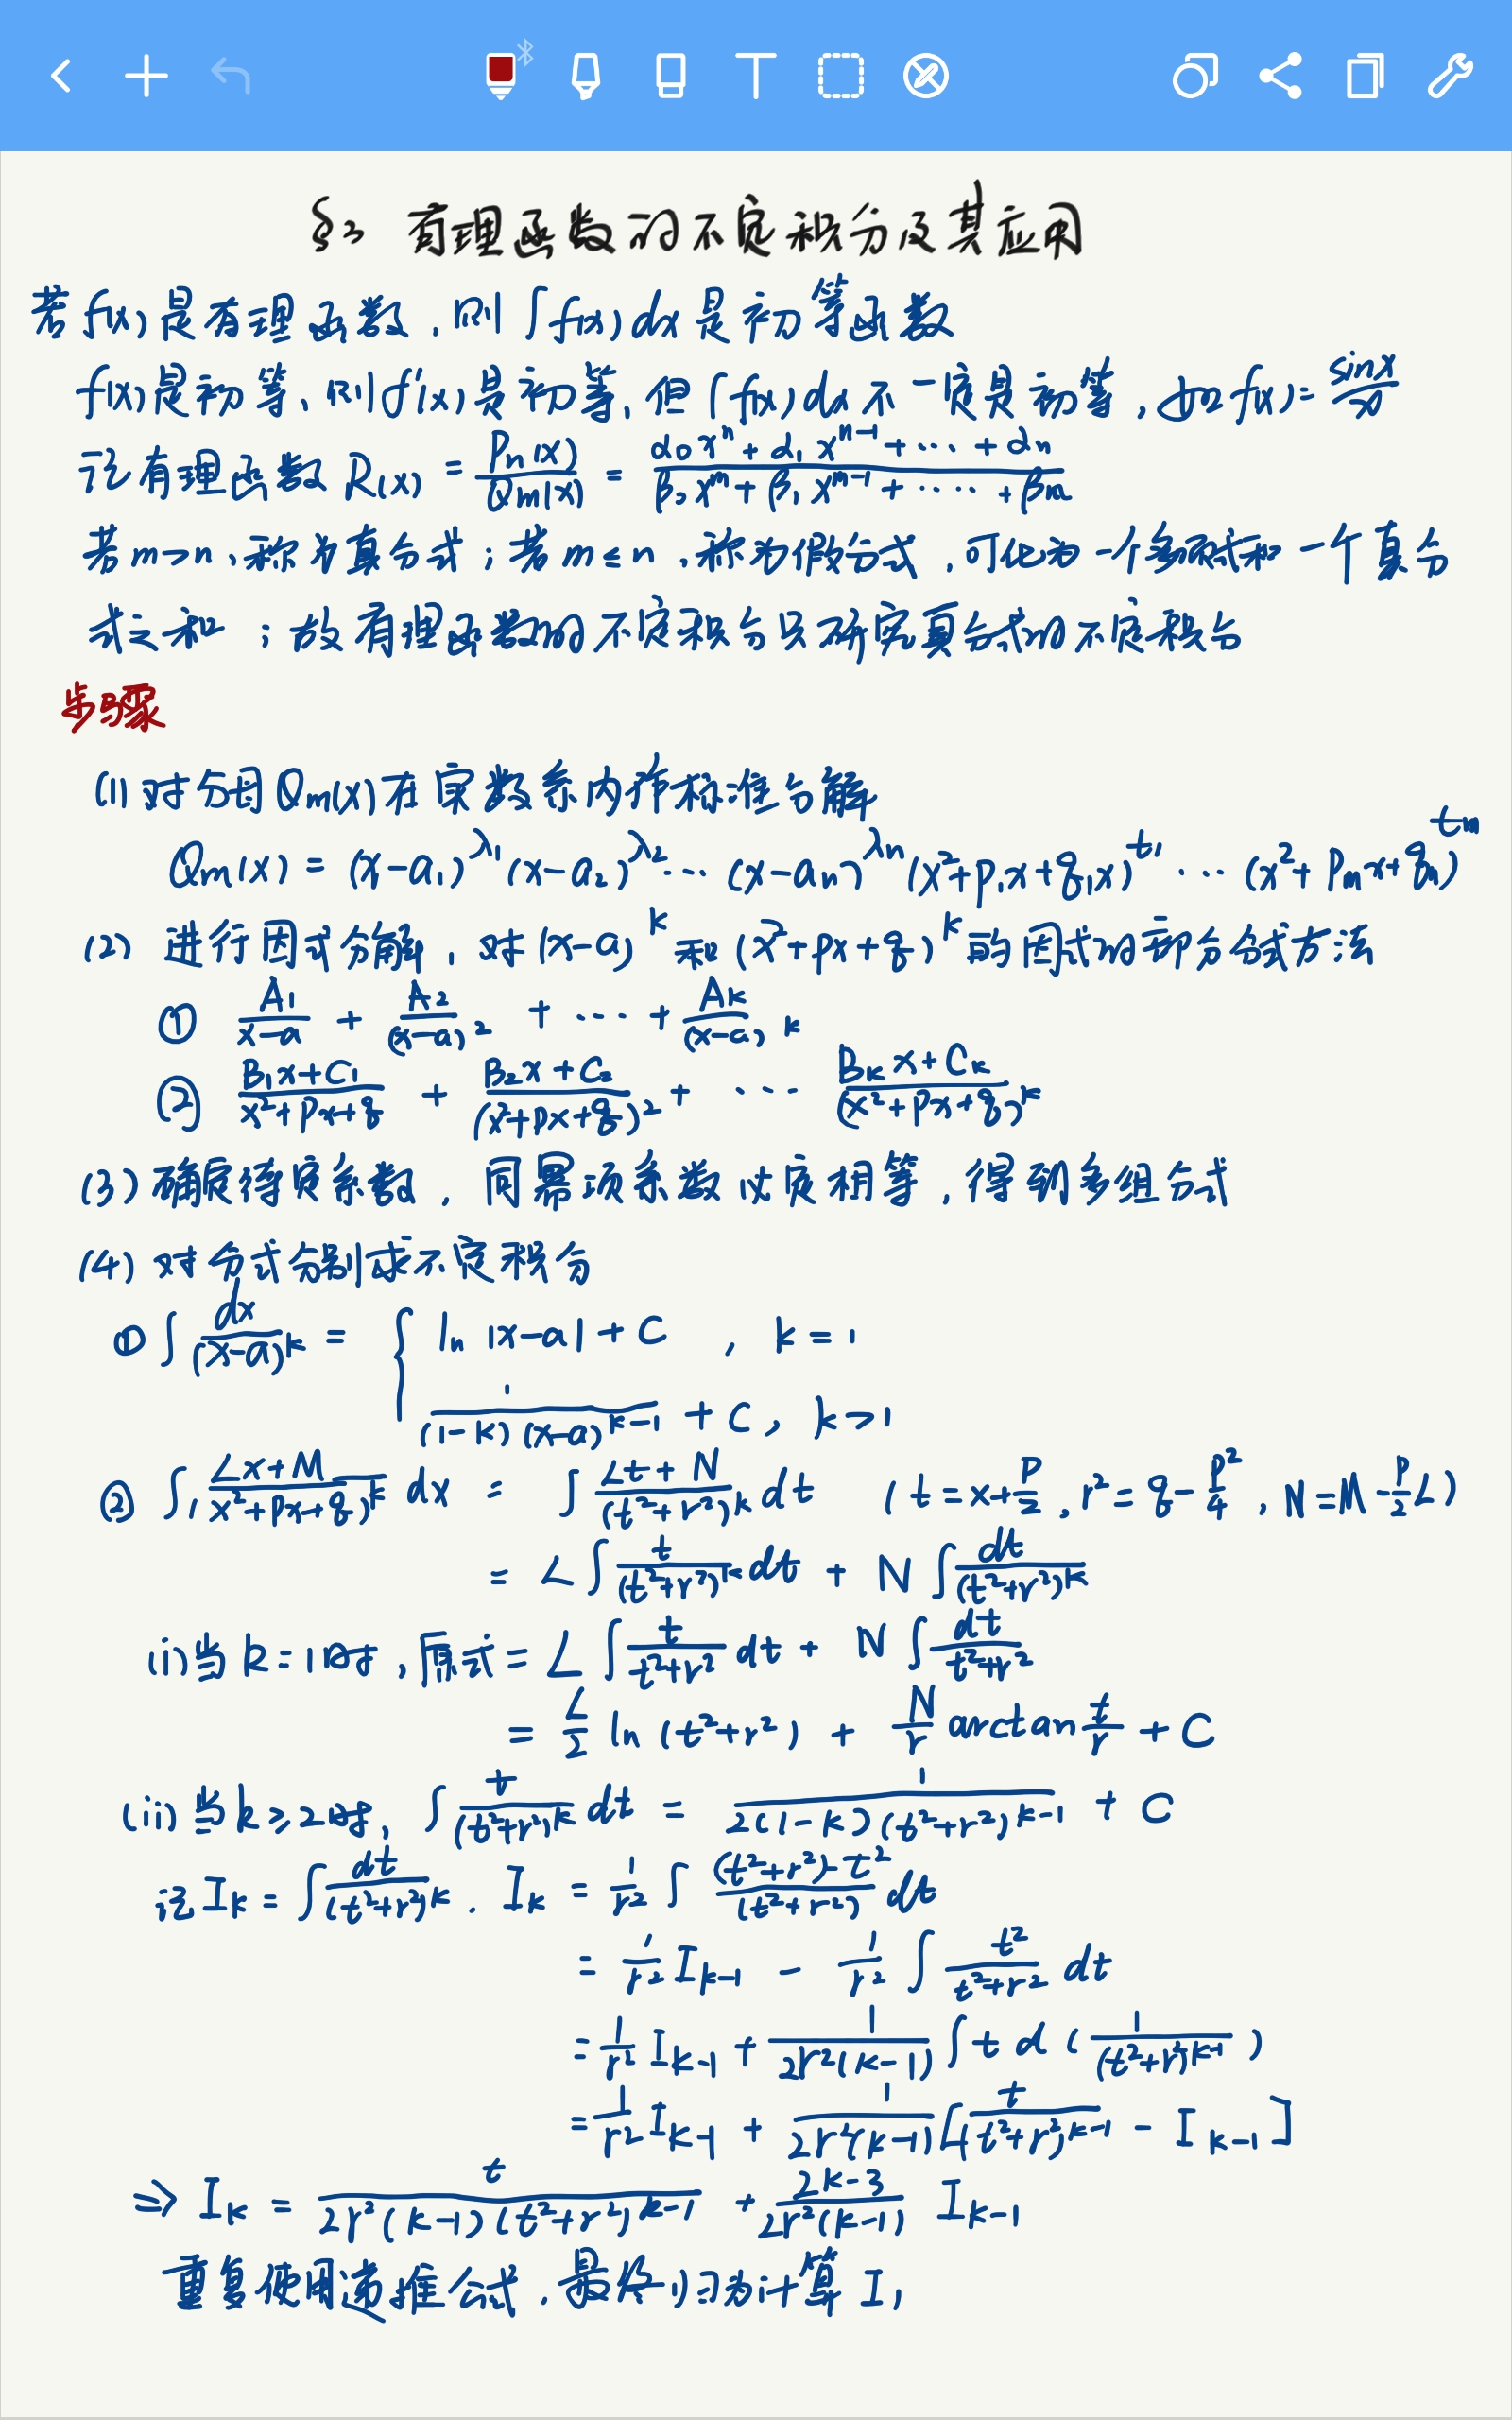 §2 有理函数的不定积分及其应用
若 f(x) 是有理函数,则 ∫f(x)dx 是初等函数
f(x)是初等,则f'(x)是初等,但∫f(x)dx不一定是初等,如f(x)=sinx/x
记有理函数 R(x) = Pn(x)/Qm(x) = (α₀xⁿ+α₁xⁿ⁻¹+···+αn)/(β₀xᵐ+β₁xᵐ⁻¹+····+βm)
若m>n,称为真分式;若m≤n,称为假分式,可化为一个多项式和一个真分
式之和;故有理函数的不定积分只研究真分式的不定积分
步骤
(1) 对分母Qm(x)在实数系内作标准分解
Qm(x) = (x-a₁)^λ₁(x-a₂)^λ₂··· (x-an)^λn(x²+p₁x+q₁x)^t₁ ··· (x²+pmx+qm)^tm
(2) 进行因式分解,对(x-a)^k 和 (x²+px+q)^k的因式的部分分式方法
① A₁/(x-a) + A₂/(x-a)² + ··· + Ak/(x-a)^k
② (B₁x+C₁)/(x²+px+q) + (B₂x+C₂)/(x²+px+q)² + ··· (Bkx+Ck)/(x²+px+q)^k
(3) 确定待定系数,同幂项系数必定相等,得到多组分式
(4) 对分式分别求不定积分
① ∫dx/(x-a)^k = { ln|x-a|+C , k=1
1/((1-k)(x-a)^(k-1)) + C, k>1
② ∫(Lx+M)/(x²+px+q)^k dx = ∫(Lt+N)/(t²+r²)^k dt (t=x+p/2, r²=q-p²/4, N=M-p/2 L)
= L∫t/(t²+r²)^k dt + N∫dt/(t²+r²)^k
(i)当k=1时,原式= L∫t/(t²+r²) dt + N∫dt/(t²+r²)
= L/2 ln(t²+r²) + N/r arctan t/r + C
(ii)当k≥2时,∫t/(t²+r²)^k dt = 1/(2(1-k)(t²+r²)^(k-1)) + C
记 Ik = ∫dt/(t²+r²)^k . Ik = 1/r² ∫((t²+r²)-t²)/(t²+r²) dt
= 1/r² Ik-1 - 1/r² ∫t²/(t²+r²) dt
= 1/r² Ik-1 + 1/(2r²(k-1)) ∫t d(1/(t²+r²)^(k-1))
= 1/r² Ik-1 + 1/(2r²(k-1)) [t/(t²+r²)^(k-1) - Ik-1]
⇒ Ik = t/(2r²(k-1)(t²+r²)^(k-1)) + (2k-3)/(2r²(k-1)) Ik-1
重复使用递推公式,最终归为计算 I₁